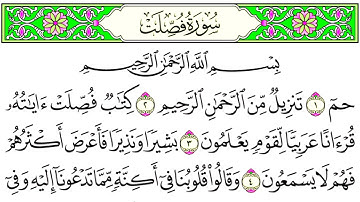 سُورَةُ فُصِّلَتْ
بِسْمِ ٱللَّهِ ٱلرَّحْمَٰنِ ٱلرَّحِيمِ
حمٓ ١ تَنزِيلٌ مِّنَ ٱلرَّحْمَٰنِ ٱلرَّحِيمِ ٢ كِتَٰبٌ فُصِّلَتْ ءَايَٰتُهُۥ
قُرْءَانًا عَرَبِيًّا لِّقَوْمٍ يَعْلَمُونَ ٣ بَشِيرًا وَنَذِيرًا فَأَعْرَضَ أَكْثَرُهُمْ
فَهُمْ لَا يَسْمَعُونَ ٤ وَقَالُوا۟ قُلُوبُنَا فِىٓ أَكِنَّةٍ مِّمَّا تَدْعُونَآ إِلَيْهِ وَفِىٓ